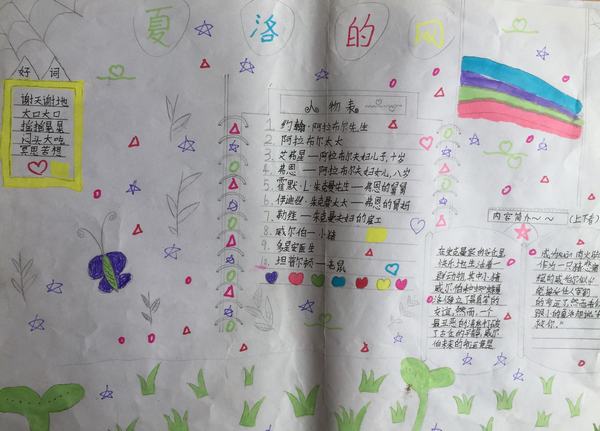 夏洛的网
好词
谢天谢地
大口大口
摇摇晃晃
闷头大吃
冥思苦想
人物表
1. 约翰·阿拉布尔先生
2. 阿拉布尔太太
3. 艾弗里—阿拉布尔夫妇儿子,十岁
4. 弗恩—阿拉布尔夫妇女儿,八岁
5. 霍默·L·朱克曼先生—弗恩的舅舅
6. 伊迪丝·朱克曼太太—弗恩的舅妈
7. 勒维—朱克曼夫妇的雇工
8. 威尔伯—小猪
9. 多里安医生
10. 坦普尔顿—老鼠
内容简介~~(上下卷)
在朱克曼家的谷仓里
快乐地生活着一
群动物,其中小猪
威尔伯和蜘蛛夏
洛建立了最真挚的
友谊,然而,一个
最丑恶的消息打破
了谷仓的平静,威尔
伯未来的命运竟是